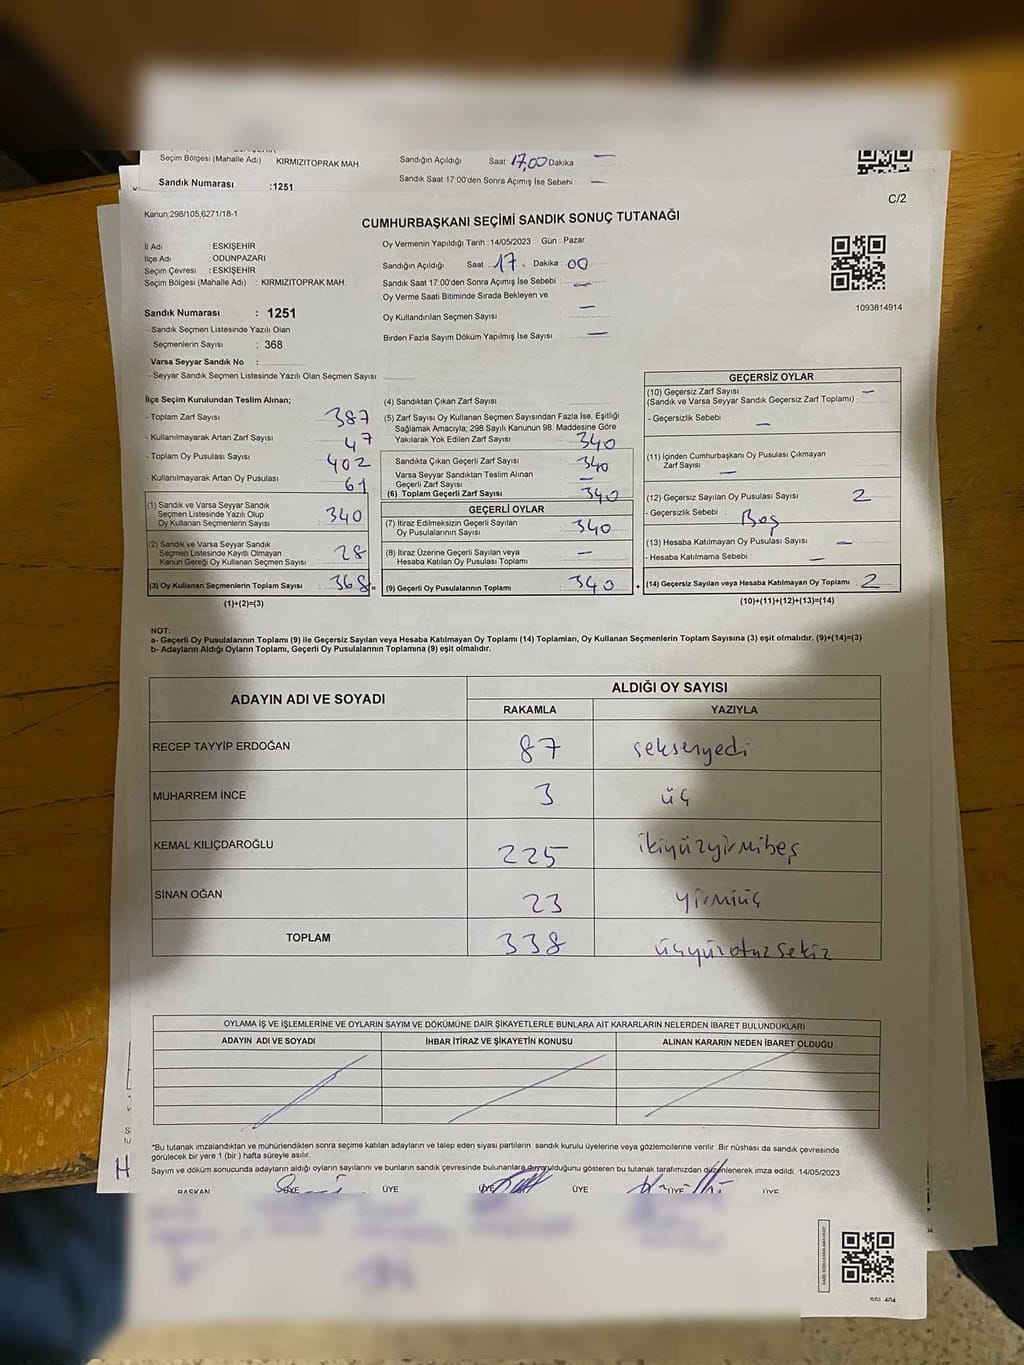 Seçim Bölgesi (Mahalle Adı) : KIRMIZITOPRAK MAH.
Sandık Numarası :1251
Sandığın Açıldığı Saat: 17,00 Dakika —
Sandık Saat 17:00'den Sonra Açımış İse Sebebi —
C/2
Kanun;298/105,6271/18-1
CUMHURBAŞKANI SEÇİMİ SANDIK SONUÇ TUTANAĞI
İl Adı : ESKİŞEHİR
İlçe Adı : ODUNPAZARI
Seçim Çevresi : ESKİŞEHİR
Seçim Bölgesi (Mahalle Adı) : KIRMIZITOPRAK MAH.
Oy Vermenin Yapıldığı Tarih :14/05/2023 Gün : Pazar
Sandığın Açıldığı Saat : 17 . Dakika : 00
Sandık Saat 17:00'den Sonra Açımış İse Sebebi : —
Oy Verme Saati Bitiminde Sırada Bekleyen ve
Oy Kullandırılan Seçmen Sayısı : —
Birden Fazla Sayım Döküm Yapılmış İse Sayısı : —
1093814914
Sandık Numarası : 1251
- Sandık Seçmen Listesinde Yazılı Olan
Seçmenlerin Sayısı : 368
Varsa Seyyar Sandık No :
- Seyyar Sandık Seçmen Listesinde Yazılı Olan Seçmen Sayısı:
İlçe Seçim Kurulundan Teslim Alınan;
- Toplam Zarf Sayısı : 387
- Kullanılmayarak Artan Zarf Sayısı : 47
- Toplam Oy Pusulası Sayısı : 402
- Kullanılmayarak Artan Oy Pusulası : 61
(1) Sandık ve Varsa Seyyar Sandık
Seçmen Listesinde Yazılı Olup
Oy Kullanan Seçmenlerin Sayısı : 340
(2) Sandık ve Varsa Seyyar Sandık
Seçmen Listesinde Kayıtlı Olmayan
Kanun Gereği Oy Kullanan Seçmen Sayısı : 28
(3) Oy Kullanan Seçmenlerin Toplam Sayısı : 368 =
(1)+(2)=(3)
(4) Sandıktan Çıkan Zarf Sayısı :
(5) Zarf Sayısı Oy Kullanan Seçmen Sayısından Fazla İse, Eşitliği
Sağlamak Amacıyla; 298 Sayılı Kanunun 98. Maddesine Göre
Yakılarak Yok Edilen Zarf Sayısı : 340
Sandıkta Çıkan Geçerli Zarf Sayısı : 340
Varsa Seyyar Sandıktan Teslim Alınan
Geçerli Zarf Sayısı : —
(6) Toplam Geçerli Zarf Sayısı : 340
GEÇERLİ OYLAR
(7) İtiraz Edilmeksizin Geçerli Sayılan
Oy Pusulalarının Sayısı : 340
(8) İtiraz Üzerine Geçerli Sayılan veya
Hesaba Katılan Oy Pusulası Toplamı : —
(9) Geçerli Oy Pusulalarının Toplamı : 340 +
GEÇERSİZ OYLAR
(10) Geçersiz Zarf Sayısı : —
(Sandık ve Varsa Seyyar Sandık Geçersiz Zarf Toplamı)
- Geçersizlik Sebebi : —
(11) İçinden Cumhurbaşkanı Oy Pusulası Çıkmayan
Zarf Sayısı : —
(12) Geçersiz Sayılan Oy Pusulası Sayısı : 2
- Geçersizlik Sebebi : Boş
(13) Hesaba Katılmayan Oy Pusulası Sayısı : —
- Hesaba Katılmama Sebebi : —
(14) Geçersiz Sayılan veya Hesaba Katılmayan Oy Toplamı : 2
(10)+(11)+(12)+(13)=(14)
NOT:
a- Geçerli Oy Pusulalarının Toplamı (9) ile Geçersiz Sayılan veya Hesaba Katılmayan Oy Toplamı (14) Toplamları, Oy Kullanan Seçmenlerin Toplam Sayısına (3) eşit olmalıdır. (9)+(14)=(3)
b- Adayların Aldığı Oyların Toplamı, Geçerli Oy Pusulalarının Toplamına (9) eşit olmalıdır.
ADAYIN ADI VE SOYADI ALDIĞI OY SAYISI
RAKAMLA YAZIYLA
RECEP TAYYİP ERDOĞAN 87 seksenyedi
MUHARREM İNCE 3 üç
KEMAL KILIÇDAROĞLU 225 ikiyüzyirmibeş
SİNAN OĞAN 23 yirmiüç
TOPLAM 338 üçyüzotuzsekiz
OYLAMA İŞ VE İŞLEMLERİNE VE OYLARIN SAYIM VE DÖKÜMÜNE DAİR ŞİKAYETLERLE BUNLARA AİT KARARLARIN NELERDEN İBARET BULUNDUKLARI
ADAYIN ADI VE SOYADI İHBAR İTİRAZ VE ŞİKAYETİN KONUSU ALINAN KARARIN NEDEN İBARET OLDUĞU
*Bu tutanak imzalandıktan ve mühürlendikten sonra seçime katılan adayların ve talep eden siyasi partilerin sandık kurulu üyelerine veya gözlemcilerine verilir. Bir nüshası da sandık çevresinde
görülecek bir yere 1 (bir) hafta süreyle asılır.
Sayım ve döküm sonucunda adayların aldığı oyların sayılarını ve bunların sandık çevresinde bulunanlara duyurulduğunu gösteren bu tutanak tarafımızdan düzenlenerek imza edildi. 14/05/2023
BAŞKAN ÜYE ÜYE ÜYE ÜYE ÜYE ÜYE